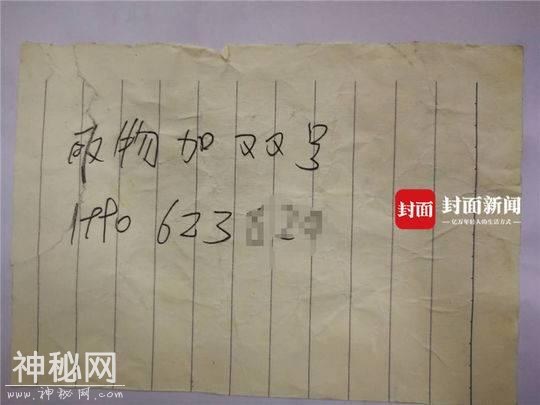 取物加双号
1990 623
封面 封面新闻
亿万年轻人的生活方式
神秘网
www.神秘网.com